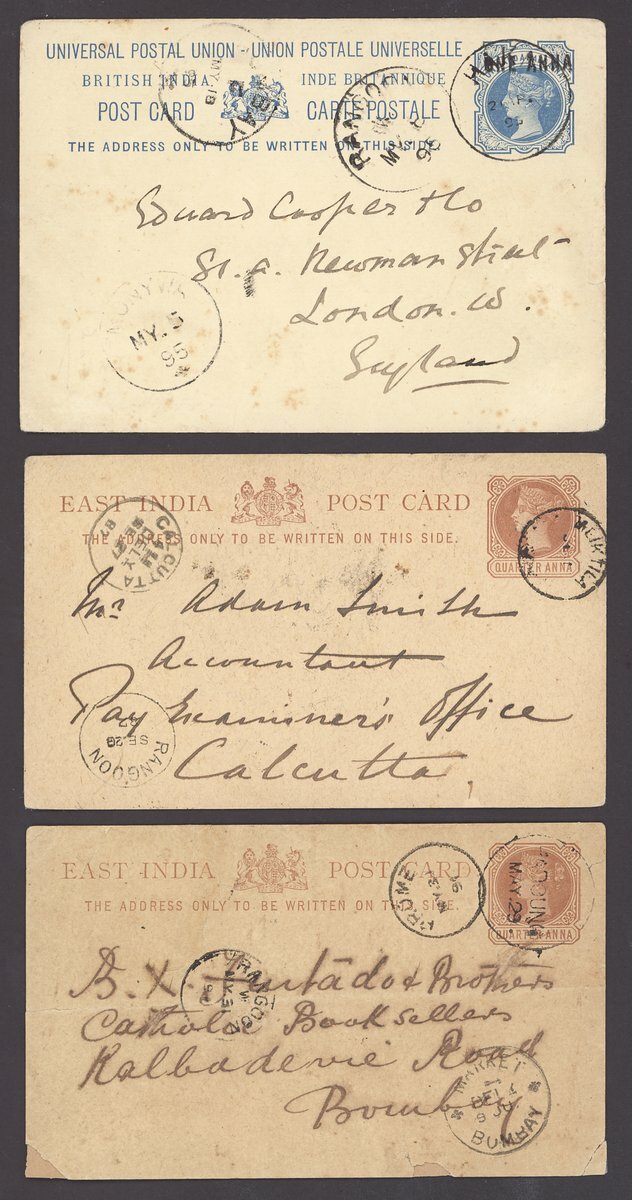 UNIVERSAL POSTAL UNION - UNION POSTALE UNIVERSELLE
BRITISH INDIA INDE BRITANNIQUE
POST CARD CARTE POSTALE
THE ADDRESS ONLY TO BE WRITTEN ON THIS SIDE.
ANNA
RANGOON
MY
95
MY 18
Edward Cooper & Co
Newman Street
London. W.
England
MY. 5
95
EAST INDIA POST CARD
THE ADDRESS ONLY TO BE WRITTEN ON THIS SIDE.
QUARTER ANNA
MEIKTILA
CALCUTTA
87
Mr Adam Smith
Accountant
Pay Examiner's Office
Calcutta
RANGOON
SE. 20
EAST INDIA POST CARD
THE ADDRESS ONLY TO BE WRITTEN ON THIS SIDE.
QUARTER ANNA
PROME
MAY. 29
B. X. Furtado & Brothers
Catholic Booksellers
Kalbadevie Road
Bombay
RANGOON
MARKET
BOMBAY